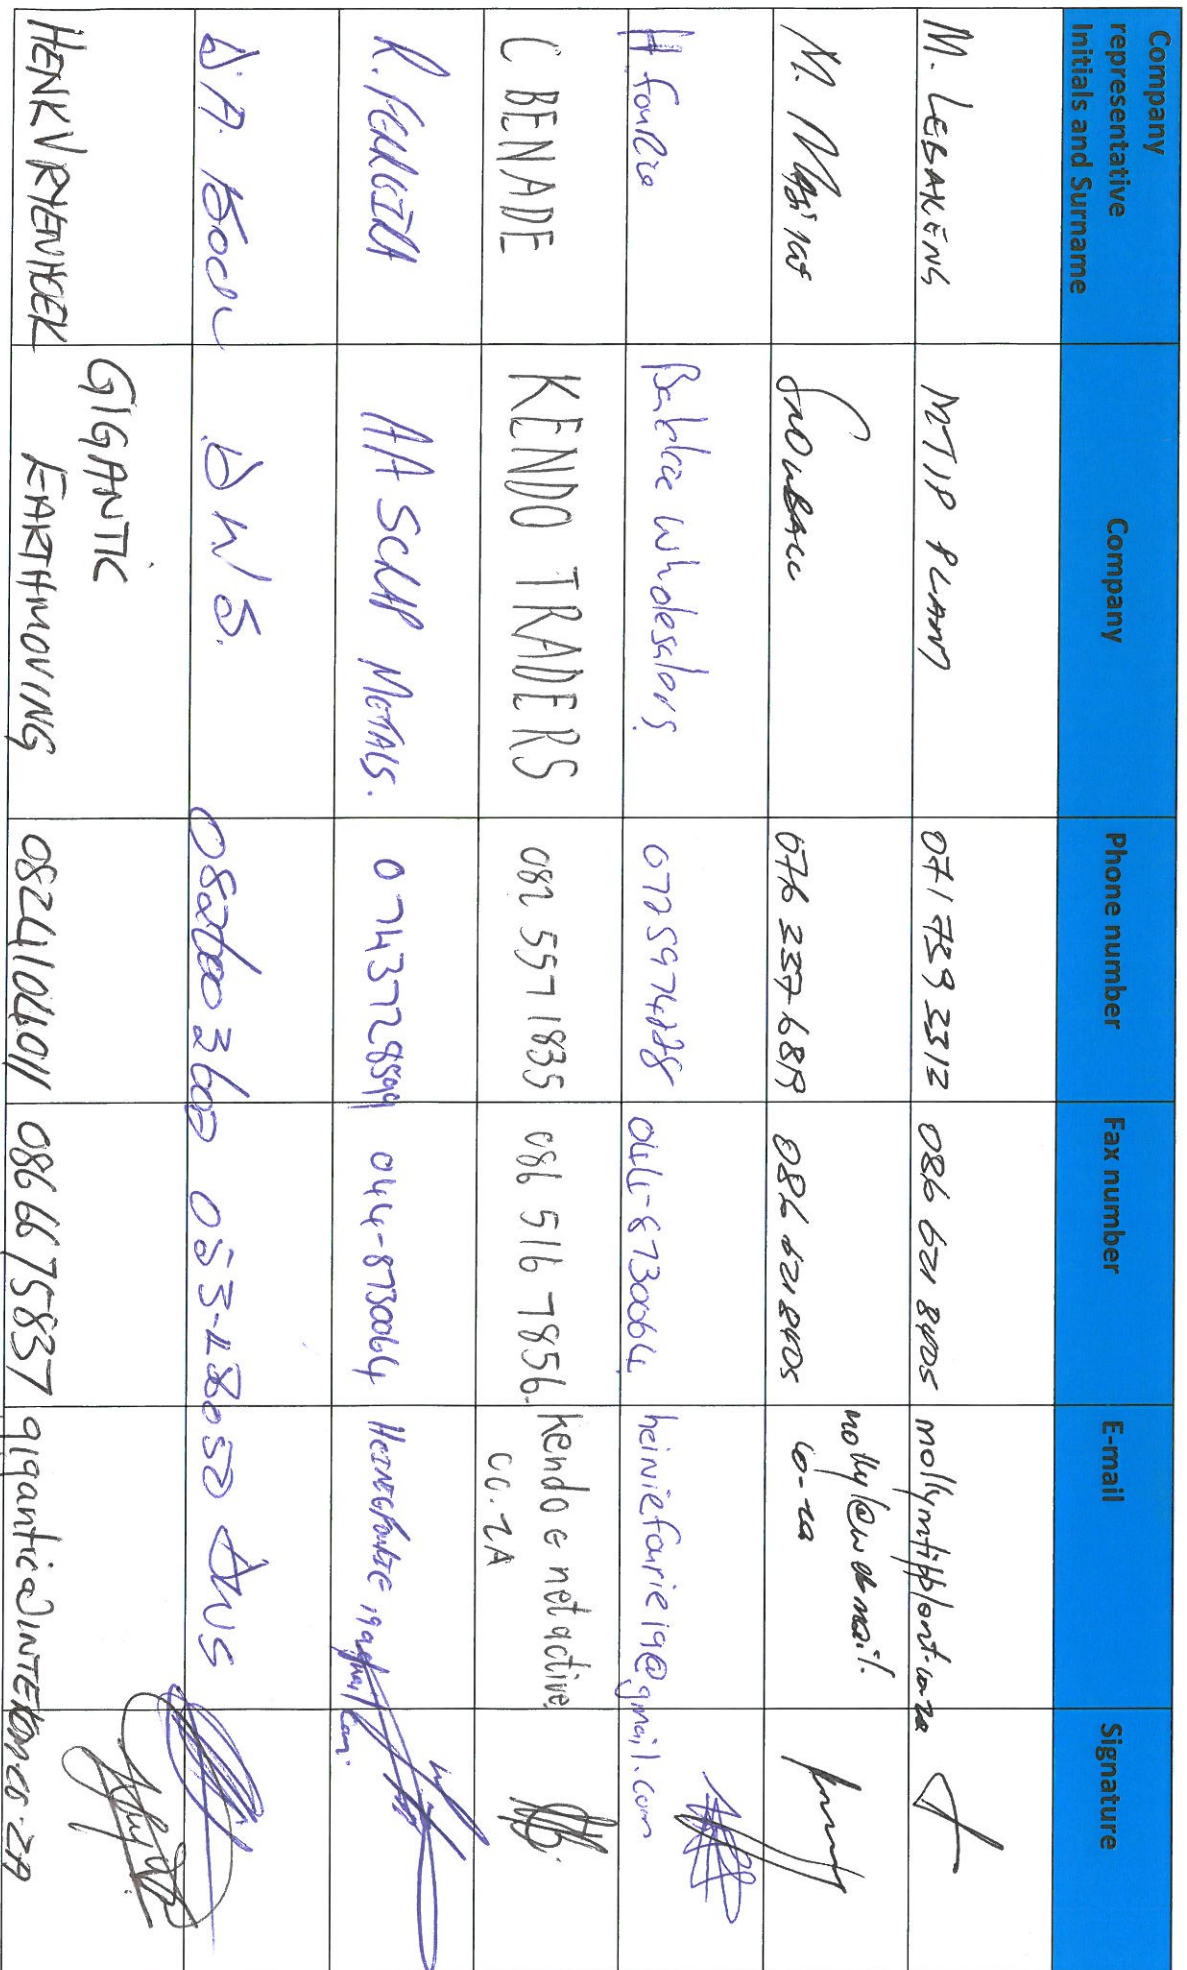 Company representative Initials and Surname Company Phone number Fax number E-mail Signature
M. LEBAKENG MTIP PLANT 071 739 3312 086 621 8405 mollymtipplant.co.za
M. SNOWBALL 076 237 6819 086 621 8405 molly1@webmail.
co-za
H. fourie Wholesalers 044-8730064 heiniefourie19@gmail.com
C BENADE KENDO TRADERS 082 557 1835 086 516 7856. kendo@netactive
CO.ZA
R. FERREIRA AA SCRAP METALS. 0743772899 044-8730064
D.A. D W S. DWS
HENK VREYENHOEK GIGANTIC
EARTHMOVING 0824104011 0866675837 gigantic@INTEKOM.CO.ZA